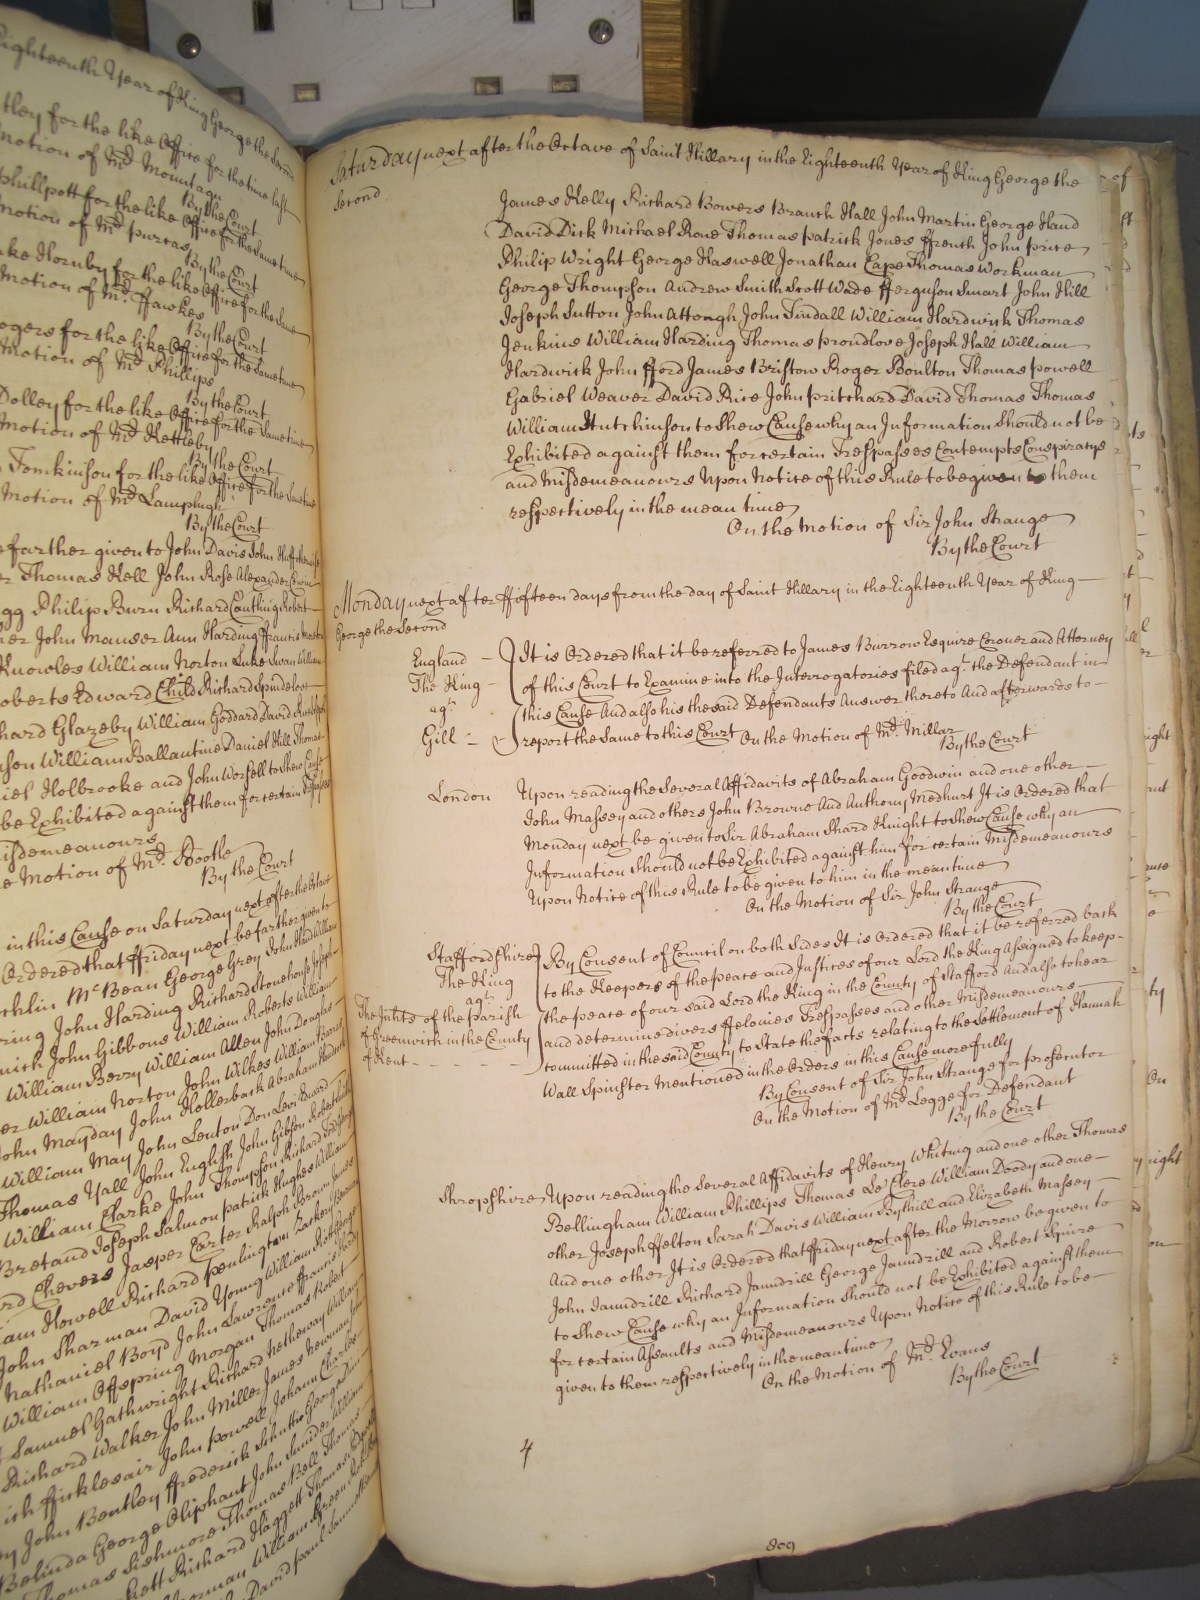 Eighteenth Year of King George the Second
tley for the like Office for the time last
motion of Mr. Mountagu
By the Court
phillpott for the like Office for the Same time
motion of Mr. purcas
By the Court
ake Hornby for the like Office for the Same
Motion of Mr. ffawkes
By the Court
ogers for the like Office for the Same time
Motion of Mr. Phillips
By the Court
Dolley for the like Office for the Same time
Motion of Mr. Kettleby
By the Court
Tomkinson for the like Office for the Same time
Motion of Mr. Lamplugh
By the Court
e farther given to John Davis John
er Thomas Kell John Rose Alexander
gg Philip Burn Richard Canthing Robert
her John Manser Ann Harding ffrancis
Knowles William Norton Luke Swan William
oberts Edward Child Richard Spindelow
hard Glazeby William Goddard David
son William Ballantine Daniel Hill Thomas
iel Holbrooke and John Worsell to Shew Cause
be Exhibited against them for certain Trespasses
isdemeanours
e Motion of Mr. Bootle
By the Court
in this Cause on Saturday next after the Octave
Ordered that ffriday next be farther given to
chlin McBean George Grey John Hand William
ring John Harding Richard Stonehouse Joseph
nich John Gibbons William Roberts William
William Berry William Allen John Douglas
er William Norton John Wilkes William
John Mayday John Hellerback Abraham
William May John Lenton Don Levi Edward
Thomas Yall John English John Gibson Robert
William Clarke John Thompson Richard
Bret and Joseph Salmon patrick Hughes William
rd Chevers Jasper Carter Ralph Brown James
iam Howell Richard penlington Zackery
John Sharman David Young William
Nathaniel Boyd John Lawrence ffrancis
William Offspring Morgan Thomas Robert
Samuel Gathwright Richard Netheway William
Richard Walker John Miller James Newman
ish fficklesair John powell Johann Charles
y John Bentley ffrederick Schutts George
Belinda George Oliphant John Sunder William
Thomas Sishmore Thomas Bell Thomas
kett Richard Haggett Thomas
orman William Green
David paul Samuel
Saturday next after the Octave of Saint Hillary in the Eighteenth Year of King George the
Second
James Kelly Richard Bowers Branch Hall John Martin George Hand
David Dick Michael Rone Thomas patrick Jones ffrenth John price
Philip Wright George Haswell Jonathan Cape Thomas Workman
George Thompson Andrew Smith Scott Wade fferguson Smart John Hill
Joseph Sutton John Attough John Tindall William Hardwick Thomas
Jenkins William Harding Thomas proudlove Joseph Hall William
Hardwick John fford James Bristow Roger Boulton Thomas powell
Gabriel Weaver David Rice John pritchard David Thomas Thomas
William Hutchinson to Shew Cause why an Information Should not be
Exhibited against them for certain Trespasses Contempts Conspiracys
and Misdemeanours Upon Notice of this Rule to be given to them
respectively in the mean time
On the Motion of Sir John Strange
By the Court
Monday next after ffifteen days from the day of Saint Hillary in the Eighteenth Year of King
George the Second
England
The King
agt.
Gill
It is Ordered that it be referred to James Burrow Esquire Coroner and Attorney
of this Court to Examine into the Interrogatories filed agt. the Defendant in
this Cause And also his the said Defendants Answer thereto And afterwards to
report the Same to this Court On the Motion of Mr. Millar
By the Court
London Upon reading the Several Affidavits of Abraham Goodwin and one other
John Massey and others John Browne And Anthony Medhurt It is Ordered that
Monday next be given to Sir Abraham Shard Knight to Shew Cause why an
Information Should not be Exhibited against him for certain Misdemeanours
Upon Notice of this Rule to be given to him in the mean time
On the Motion of Sir John Strange
By the Court
Staffordshire
The King
agt.
The Inhts. of the parish
of Greenwich in the County
of Kent
By Consent of Council on both Sides It is Ordered that it be referred back
to the Keepers of the peace and Justices of our Lord the King Assigned to keep
the peace of our said Lord the King in the County of Stafford And also to hear
and determine divers ffelonies Trespasses and other Misdemeanours
committed in the said County to State the facts relating to the Settlement of Hannah
Wall Spinster Mentioned in the Orders in this Cause more fully
By Consent of Sir John Strange for prosecutor
On the Motion of Mr. Legge for Defendant
By the Court
Shropshire Upon reading the Several Affidavits of Henry Whiting and one other Thomas
Bellingham William Phillips Thomas Le Clere William Doody and one
other Joseph ffelton Sarah Davis William Bythill and Elizabeth Massey
And one other It is Ordered that ffriday next after the Morrow be given to
John Jaundrill Richard Jaundrill George Jaundrill and Robert Squire
to Shew Cause why an Information Should not be Exhibited against them
for certain Assaults and Misdemeanours Upon Notice of this Rule to be
given to them respectively in the mean time
On the Motion of Mr. Evans
By the Court
4
809